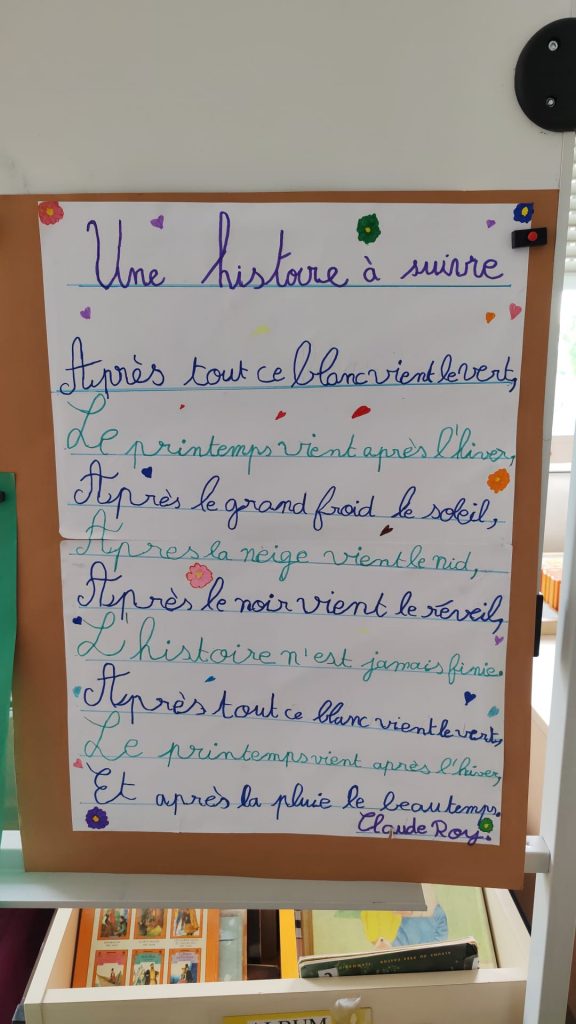 Une histoire à suivre
Après tout ce blanc vient le vert,
Le printemps vient après l'hiver,
Après le grand froid le soleil,
Apres la neige vient le nid,
Après le noir vient le réveil,
L'histoire n'est jamais finie.
Après tout ce blanc vient le vert,
Le printemps vient après l'hiver,
Et après la pluie le beau temps.
Claude Roy.
ALBUM